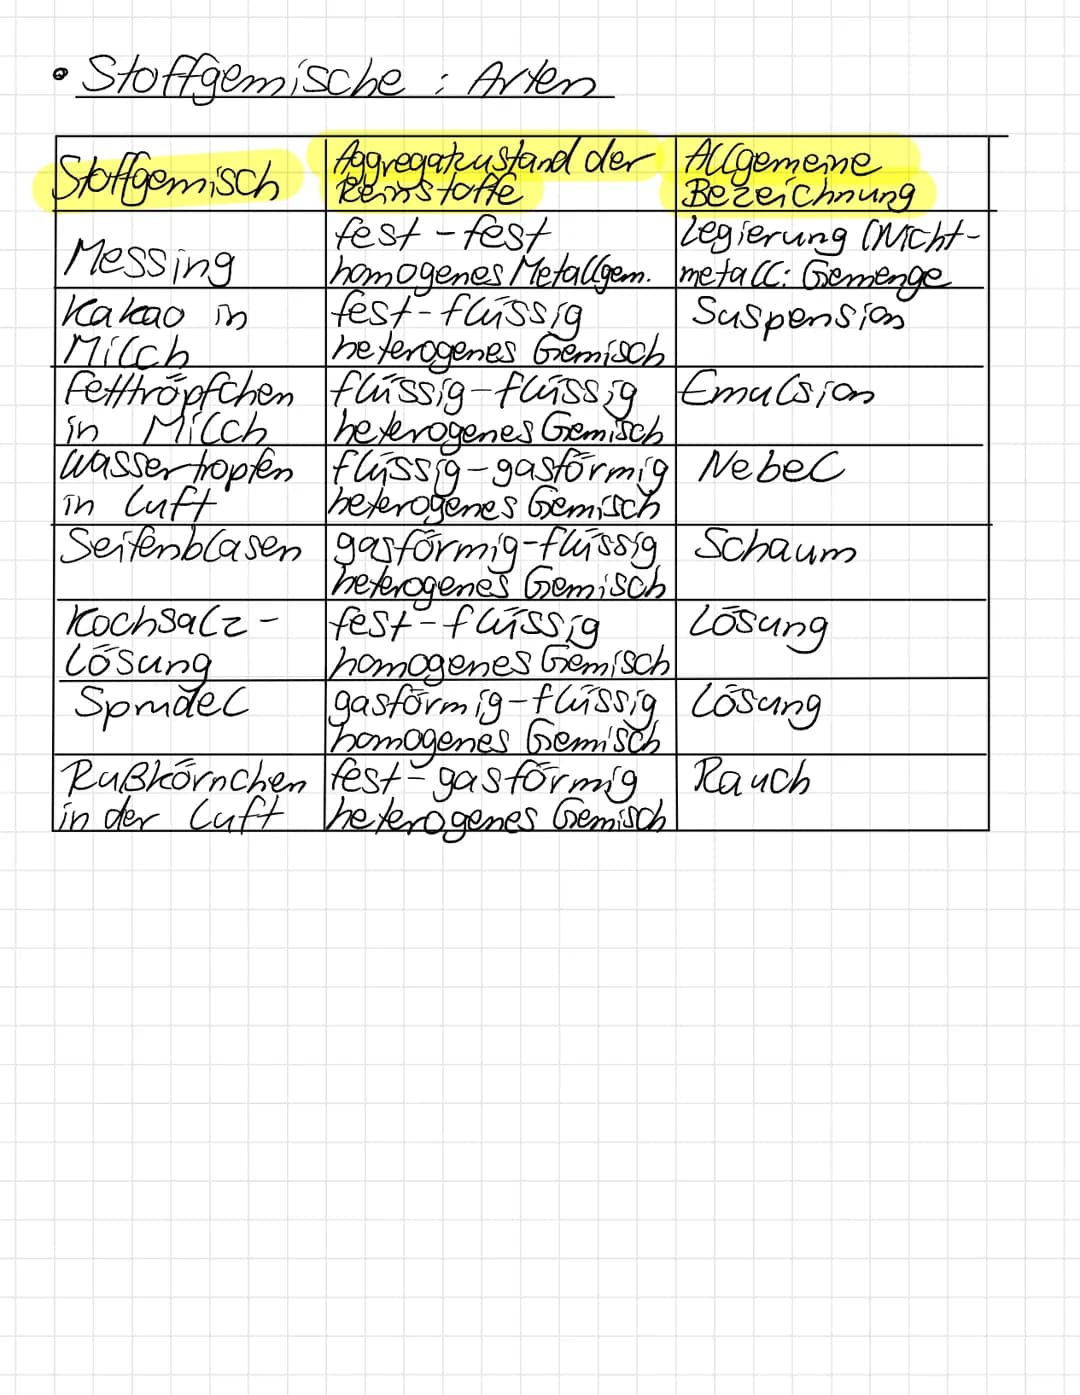 • Stoffgemische : Arten
Stoffgemisch
Aggregatzustand der
Reinstoffe
Allgemeine
Bezeichnung
Messing
fest - fest
homogenes Metallgem.
Legierung (Nicht-
metall: Gemenge
Kakao in
Milch
fest-flüssig
heterogenes Gemisch
Suspension
Fetttröpfchen
in Milch
flüssig-flüssig
heterogenes Gemisch
Emulsion
Wassertropfen
in Luft
flüssig-gasförmig
heterogenes Gemisch
Nebel
Seifenblasen
gasförmig-flüssig
heterogenes Gemisch
Schaum
Kochsalz-
Lösung
fest-flüssig
homogenes Gemisch
Lösung
Sprudel
gasförmig-flüssig
homogenes Gemisch
Lösung
Rußkörnchen
in der Luft
fest-gasförmig
heterogenes Gemisch
Rauch